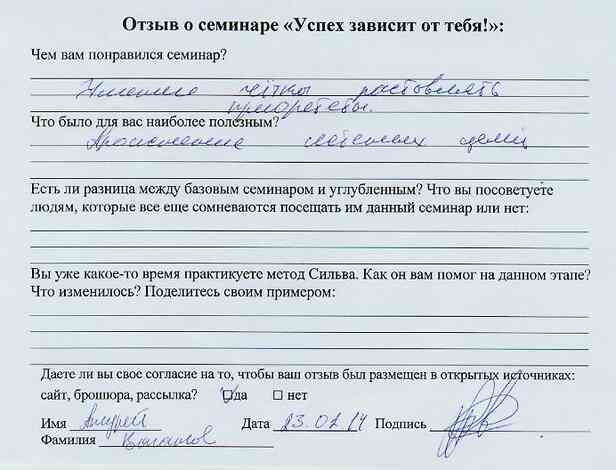 Отзыв о семинаре «Успех зависит от тебя!»:
Чем вам понравился семинар?
Умение чётко расстовлять
приорететы.
Что было для вас наиболее полезным?
Есть ли разница между базовым семинаром и углубленным? Что вы посоветуете
людям, которые все еще сомневаются посещать им данный семинар или нет:
Вы уже какое-то время практикуете метод Сильва. Как он вам помог на данном этапе?
Что изменилось? Поделитесь своим примером:
Даете ли вы свое согласие на то, чтобы ваш отзыв был размещен в открытых источниках:
сайт, брошюра, рассылка? да нет
Имя Андрей Дата 23.02.14 Подпись
Фамилия